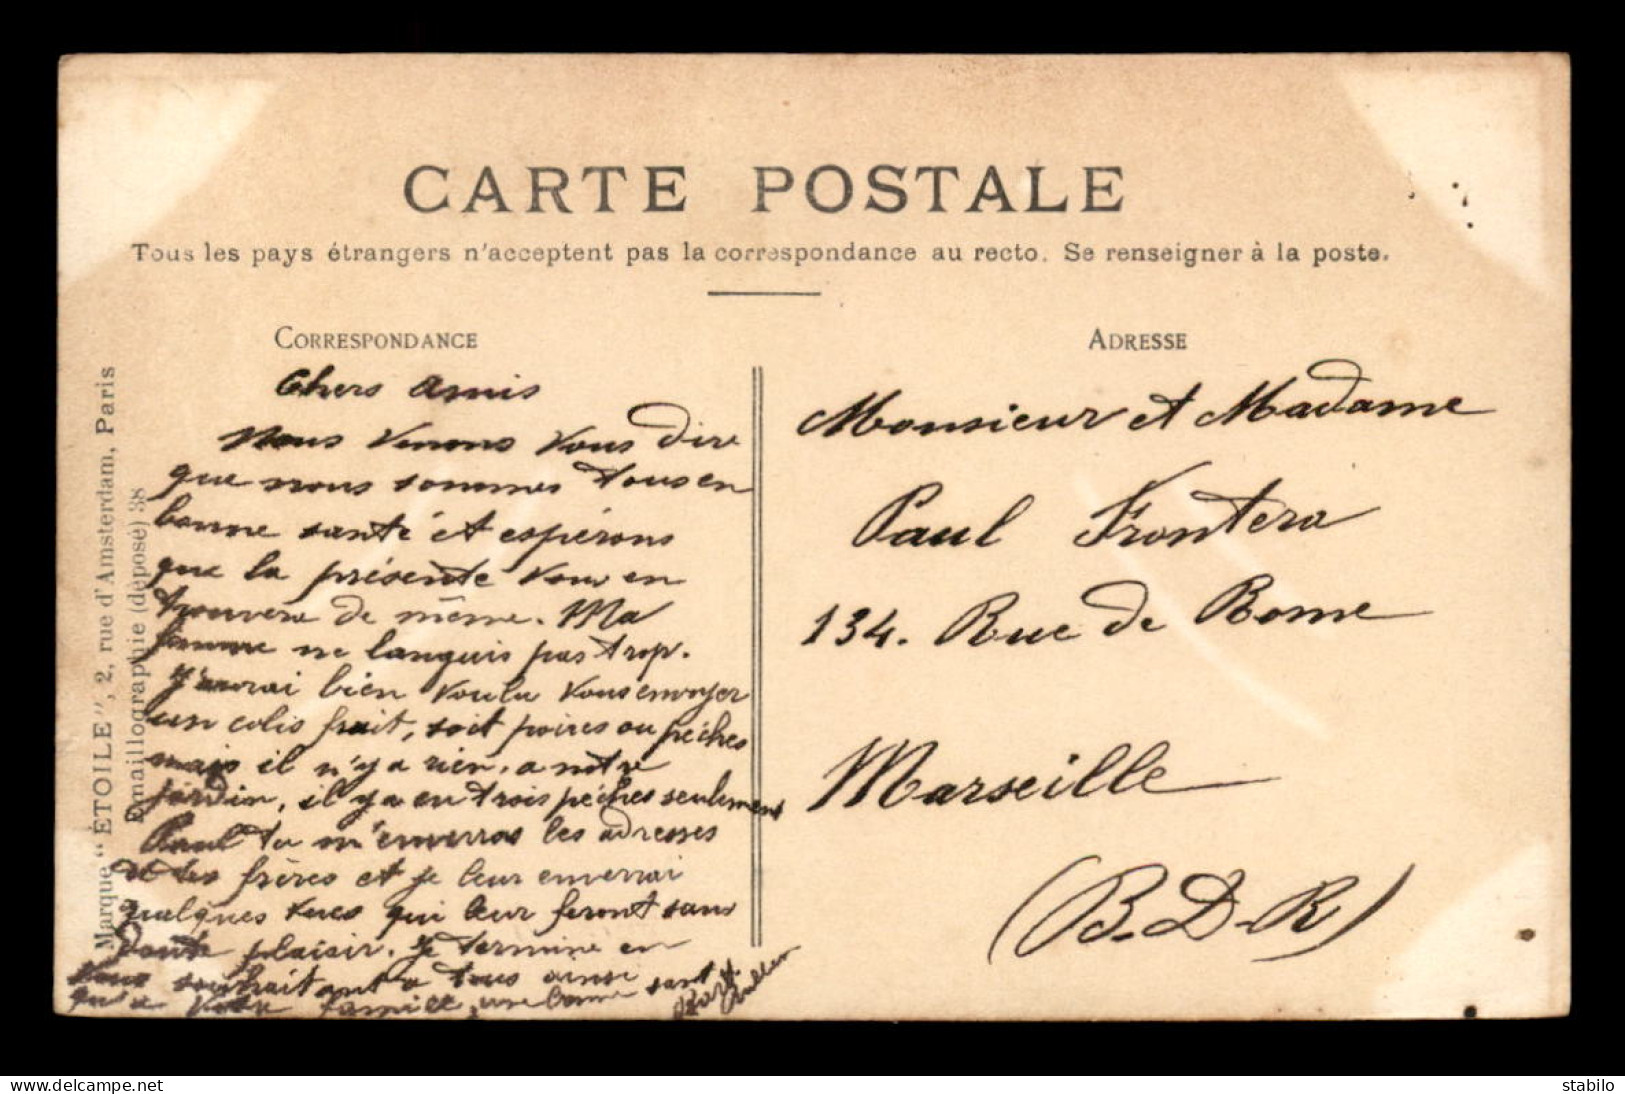 CARTE POSTALE
Tous les pays étrangers n'acceptent pas la correspondance au recto. Se renseigner à la poste.
CORRESPONDANCE
Chers Amis
Nous venons vous dire
que nous sommes tous en
bonne santé et espérons
que la présente vous en
trouvera de même. Ma
femme ne languis pas trop.
J'aurai bien voulu vous envoyer
un colis fruit, soit poires ou pêches
mais il n'y a rien, a notre
jardin, il y a eu trois pêches seulement
Paul tu m'enverras les adresses
de tes frères et je leur enverrai
quelques vues qui leur feront sans
doute plaisir. Je termine en
vous souhaitant a tous ainsi
qu'a votre famille, une bonne santé
ADRESSE
Monsieur et Madame
Paul Frontero
134. Rue de Rome
Marseille
(B-D-R)
Marque "ÉTOILE", 2, rue d'Amsterdam, Paris
Émaillographie (déposé) 38
delcampe.net
stabilo